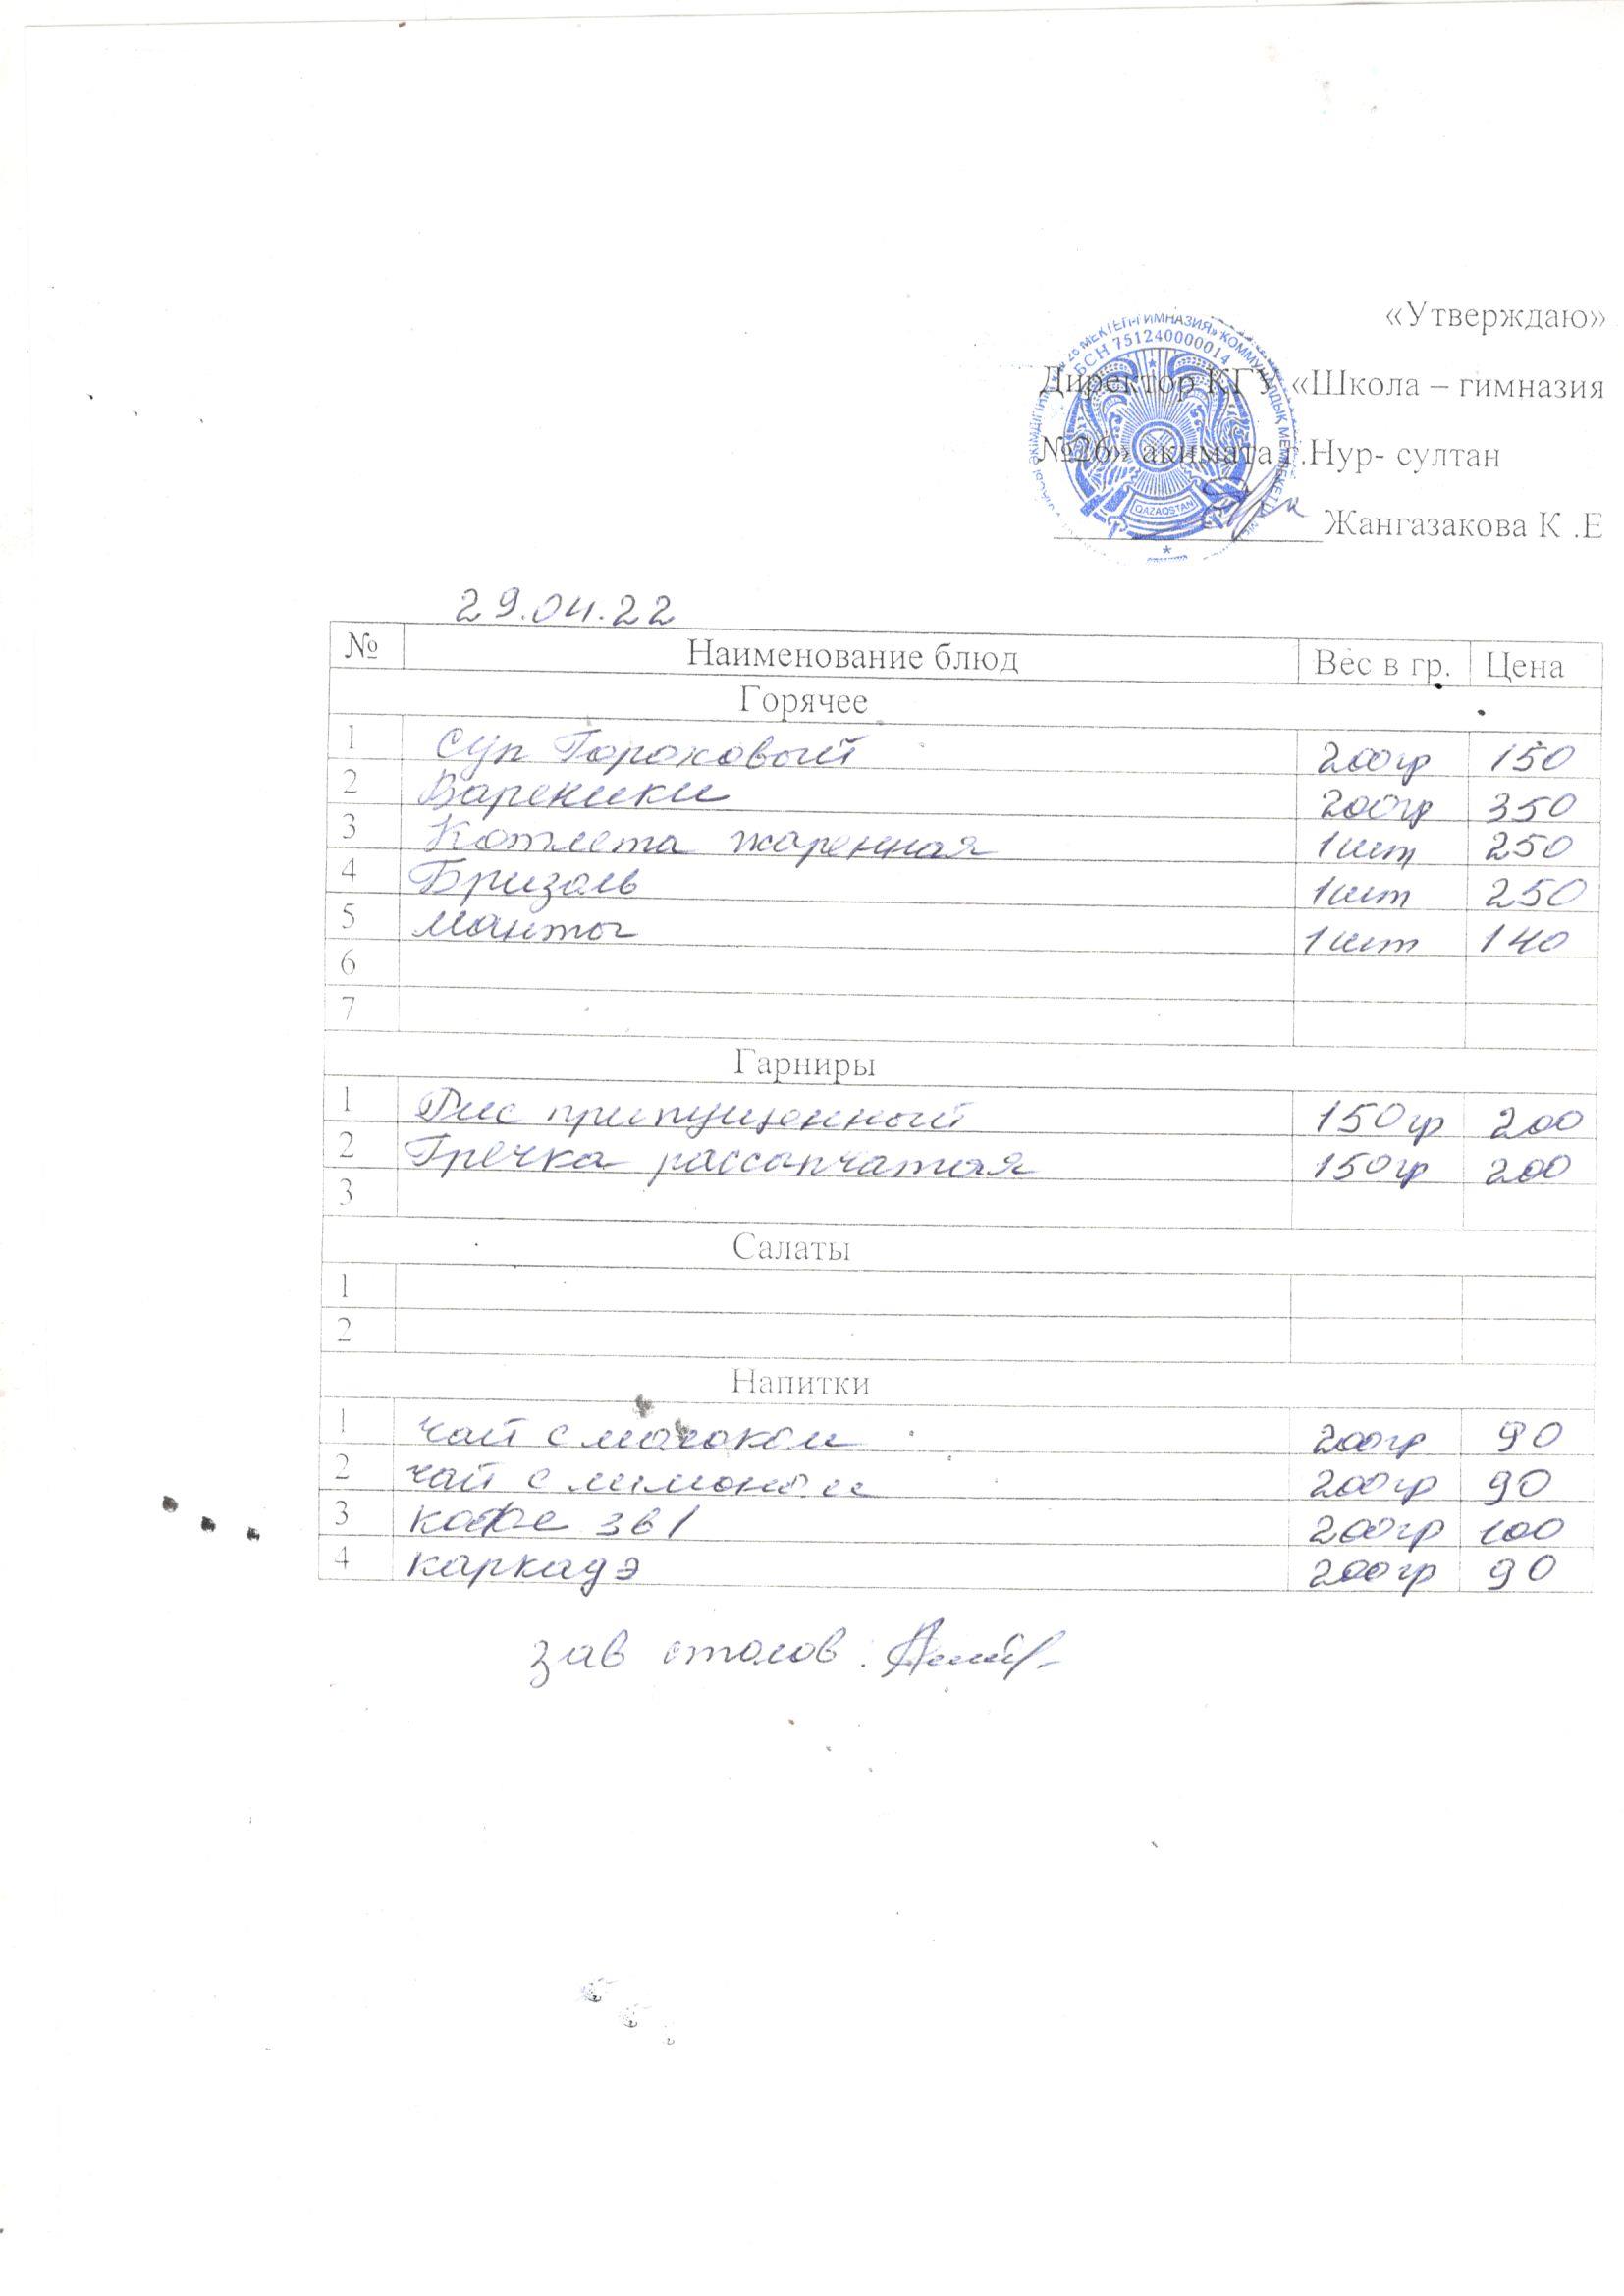 «Утверждаю»
Директор КГУ «Школа – гимназия
№26» акимата г.Нур- султан
Жангазакова К .Е
26 МЕКТЕП-ГИМНАЗИЯ» КОММУНАЛДЫҚ МЕМЛЕКЕТ
БСН 751240000014
QAZAQSTAN
29.04.22
№ Наименование блюд Вес в гр. Цена
Горячее
1 Суп Гороховый 200гр 150
2 Вареники 200гр 350
3 Котлета жаренная 1шт 250
4 Бризоль 1шт 250
5 манты 1шт 140
6
7
Гарниры
1 Рис припущенный 150гр 200
2 Гречка рассыпчатая 150гр 200
3
Салаты
1
2
Напитки
1 чай с молоком 200гр 90
2 чай с лимоном 200гр 90
3 кофе 3в1 200гр 100
4 каркадэ 200гр 90
зав столов: